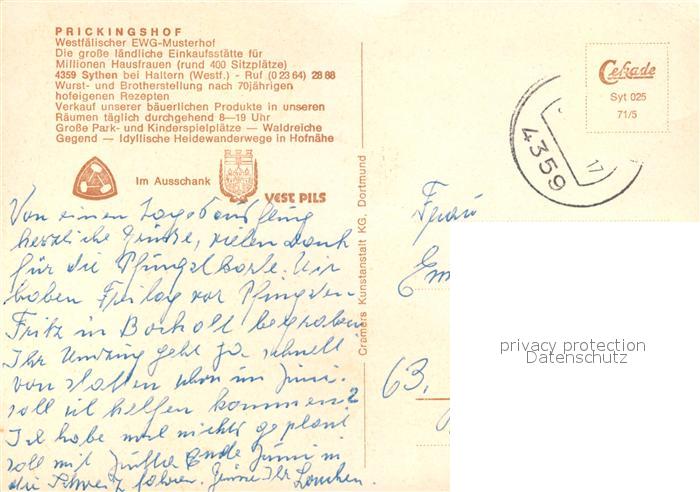 PRICKINGSHOF
Westfälischer EWG-Musterhof
Die große ländliche Einkaufsstätte für
Millionen Hausfrauen (rund 400 Sitzplätze)
4359 Sythen bei Haltern (Westf.) - Ruf (0 23 64) 28 88
Wurst- und Brotherstellung nach 70jährigen
hofeigenen Rezepten
Verkauf unserer bäuerlichen Produkte in unseren
Räumen täglich durchgehend 8—19 Uhr
Große Park- und Kinderspielplätze — Waldreiche
Gegend — Idyllische Heidewanderwege in Hofnähe
Im Ausschank
VEST PILS
Von einen Tagesausflug
herzliche Grüße, vielen Dank
für die Pfingstkarte. Wir
haben Freitag vor Pfingsten
Fritz in Bocholt begraben
Ihr Umzug geht ja schnell
von statten schon im Juni.
soll ich helfen kommen?
Ich habe mal nichts geplant
soll mit Jutta Ende Juni in
die Schweiz fahren. Ihr
Cramers Kunstanstalt KG, Dortmund
Cekade
Syt 025
71/5
4359
17
Frau
Em
63.
privacy protection
Datenschutz